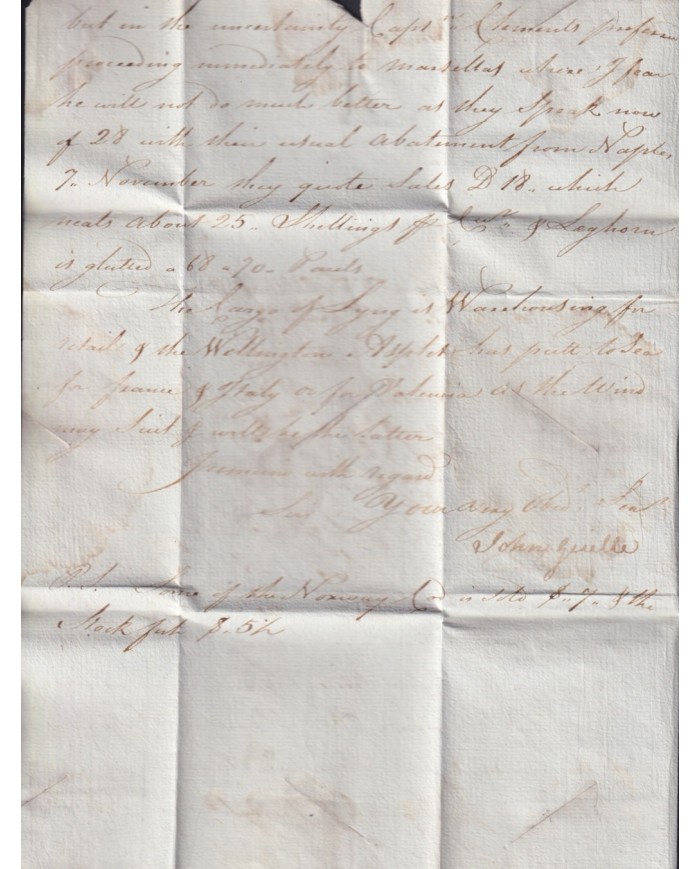 but in the uncertainty Capt.n Clements prefers
proceeding immediately to marsellas where I fear
he will not do much better as they Speak now
of 28 with their usual abatement from Naples
7. November they quote Sales D 18. which
neats about 25. Shillings & Leghorn
is glutted a 68 a 70. Pauls
The Cargo of is Warehousing for
retail & the Wellington has put to Sea
for france & Italy or for Valencia as the Wind
may Suit & will be the latter
I remain with regard
Sir Your Obd.t Serv.t
John
P.S. Some of the Norway Cod is sold $.7. & the
Stock fish $.5½